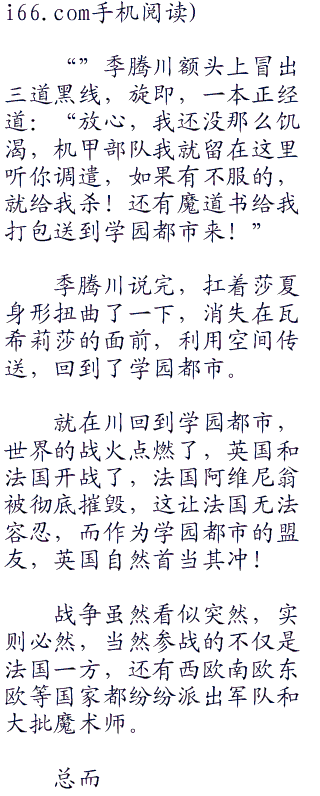 i66.com手机阅读)
“”季腾川额头上冒出
三道黑线，旋即，一本正经
道：“放心，我还没那么饥
渴，机甲部队我就留在这里
听你调遣，如果有不服的，
就给我杀！还有魔道书给我
打包送到学园都市来！”
季腾川说完，扛着莎夏
身形扭曲了一下，消失在瓦
希莉莎的面前，利用空间传
送，回到了学园都市。
就在川回到学园都市，
世界的战火点燃了，英国和
法国开战了，法国阿维尼翁
被彻底摧毁，这让法国无法
容忍，而作为学园都市的盟
友，英国自然首当其冲！
战争虽然看似突然，实
则必然，当然参战的不仅是
法国一方，还有西欧南欧东
欧等国家都纷纷派出军队和
大批魔术师。
总而